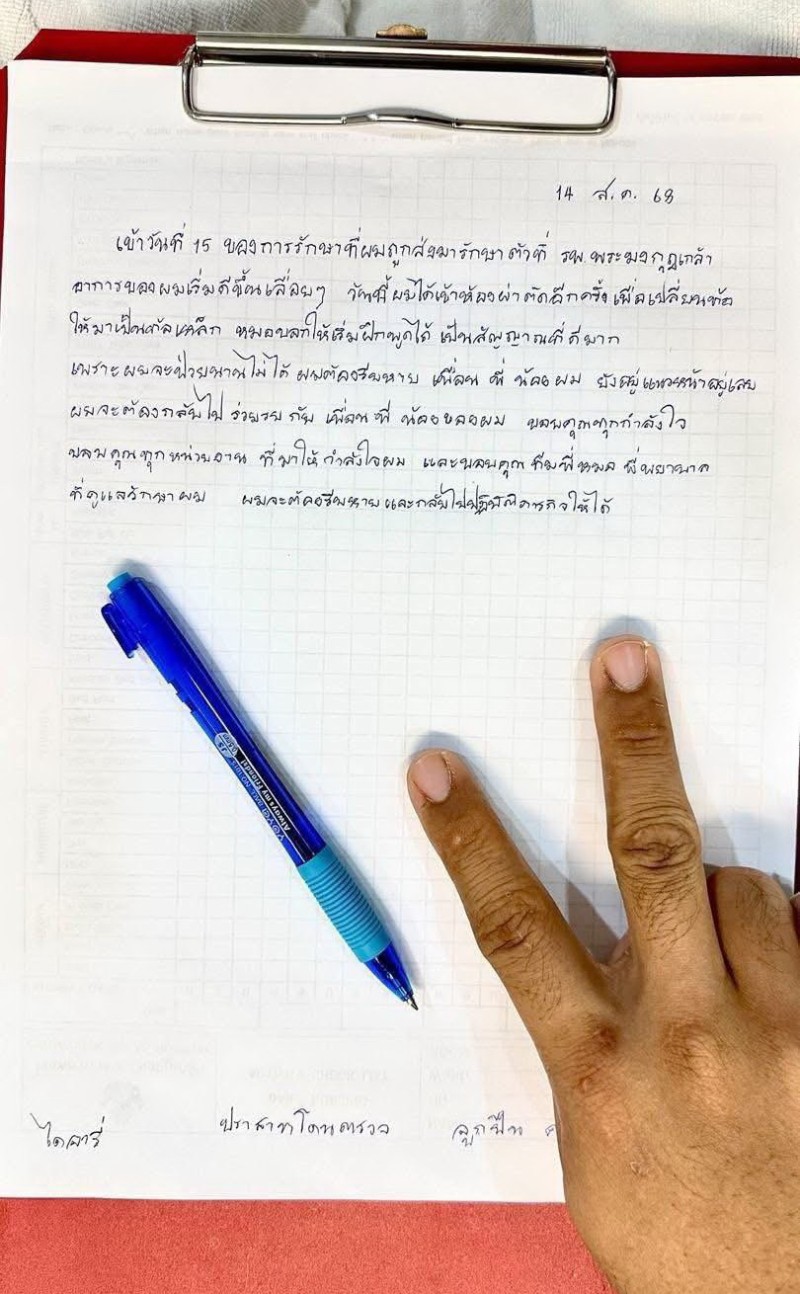 14 ส.ค. 68
เข้าวันที่ 15 ของการรักษาที่ผมถูกส่งมารักษาตัวที่ รพ.พระมงกุฎเกล้า
อาการของผมเริ่มดีขึ้นเรื่อยๆ วันนี้ผมได้เข้าห้องผ่าตัดอีกครั้ง เพื่อเปลี่ยนท่อ
ให้มาเป็นท่อเหล็ก หมอบอกให้เริ่มฝึกพูดได้ เป็นสัญญาณที่ดีมาก
เพราะผมจะป่วยนานไม่ได้ ผมต้องรีบหาย เพื่อน พี่ น้อง ผม ยังอยู่แนวหน้าอยู่เลย
ผมจะต้องกลับไป ร่วมรบ กับ เพื่อน พี่ น้องของผม ขอบคุณทุกกำลังใจ
ขอบคุณทุกหน่วยงาน ที่มาให้กำลังใจผม และขอบคุณ ทีมพี่หมอ พี่พยาบาล
ที่ดูแลรักษาผม ผมจะต้องรีบหายและกลับไปปฏิบัติภารกิจให้ได้
Always my friends!
ไดอารี่ ปราสาทโดนตรวล ลูกปืน